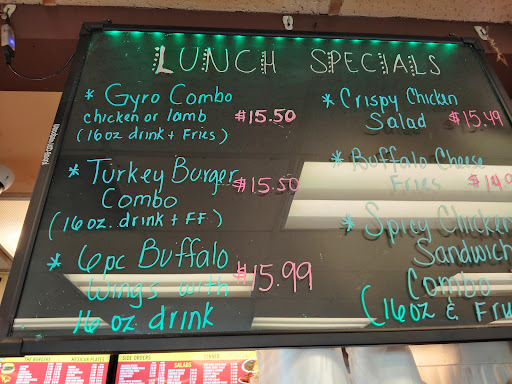 LUNCH SPECIALS
* Gyro Combo
chicken or lamb $15.50
(16oz drink + Fries)
* Turkey Burger $15.50
Combo
(16 oz. drink + FF)
* 6pc Buffalo
Wings with $15.99
16 oz drink
* Crispy Chicken
Salad $15.49
* Buffalo Cheese
Fries $14.9
* Spicy Chicken
Sandwich
Combo
(16oz & Fri
MEXICAN PLATES
SIDE ORDERS
SALADS
DINNER